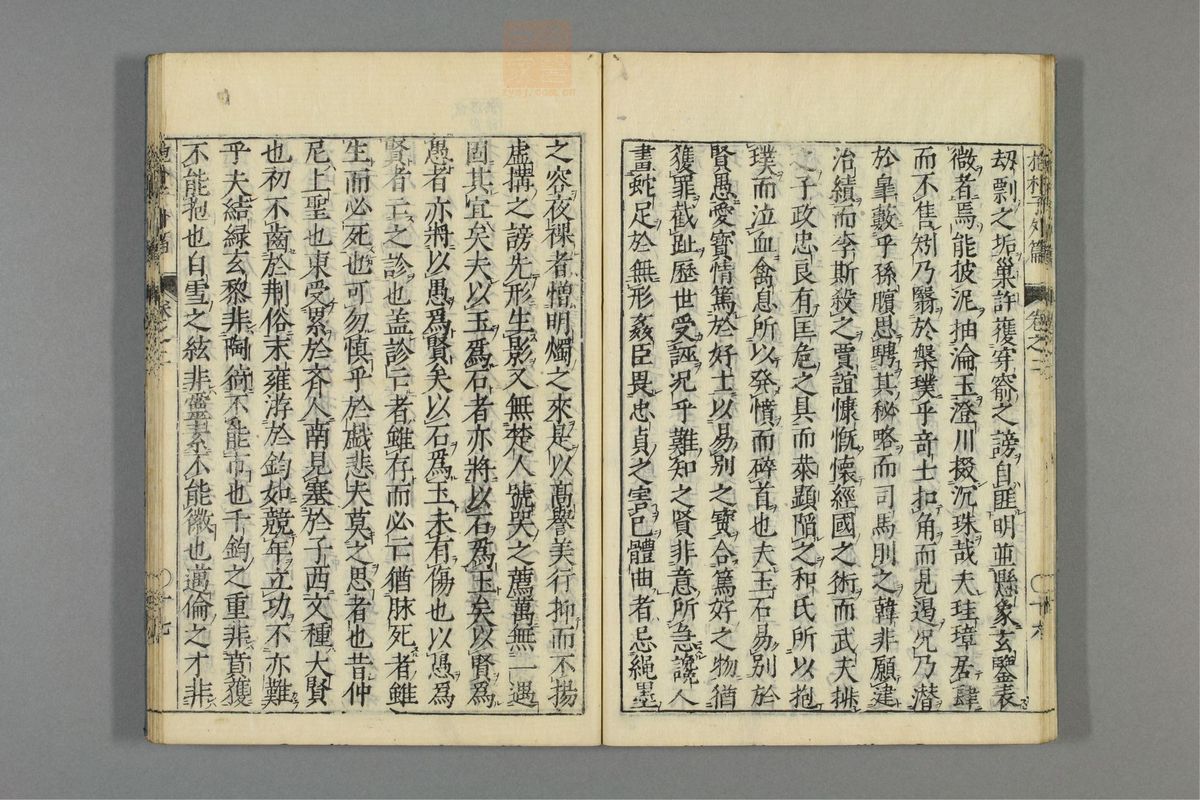 抱朴子外篇 卷之二 十六
劫剽之垢巢許獲穿窬之謗自匪明並懸象玄鑒表
微者焉能披泥抽淪玉澄川掇沉珠哉夫珪璋居肆
而不售矧乃翳於槃璞乎奇士扣角而見遏況乃潛
於皐藪乎孫臏思騁其秘略而司馬刖之韓非願建
治績而李斯殺之賈誼慷慨懷經國之術而武夫排
之子政忠良有匡危之具而恭顯陷之和氏所以抱
璞而泣血禽息所以発憤而碎首也夫玉石易別於
賢愚愛寶情篤於好士以易別之寶合篤好之物猶
獲罪截趾歷世受誣況乎難知之賢非意所急讒人
畫蛇足於無形姦臣畏忠貞之害己體曲者忌繩墨
之容夜裸者憎明燭之來是以髙譽美行抑而不揚
虛搆之謗先形生影又無楚人號哭之薦萬無一遇
固其宜矣夫以玉爲石者亦將以石爲玉矣以賢爲
愚者亦將以愚爲賢矣以石爲玉未有傷也以愚爲
賢者亡之診也盖診亡者雖存而必亡猶脉死者雖
生而必死也可勿慎乎於戲悲夫莫之思者也昔仲
尼上聖也東受累於齊人南見塞於子西文種大賢
也初不齒於荆俗末雍游於鈞如競年立功不亦難
乎夫結綠玄黎非陶猗不能市也千鈞之重非賁獲
不能抱也白雪之絃非靈素不能徽也邁倫之才非
卷之 十七